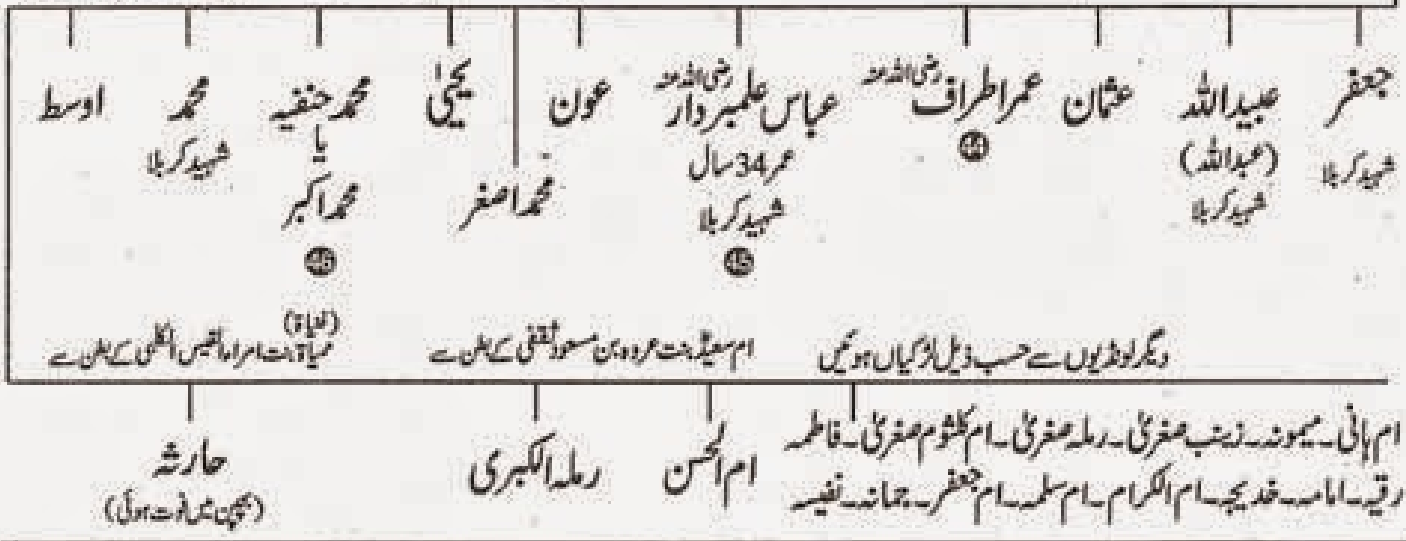 جعفر
شہید کربلا
عبیداللہ
(عبداللہ)
شہید کربلا
عثمان
عمر اطراف رضی اللہ عنہ
44
عباس علمبردار رضی اللہ عنہ
عمر 34 سال
شہید کربلا
45
عون
محمد اصغر
یحییٰ
محمد حنفیہ
یا
محمد اکبر
46
محمد
شہید کربلا
اوسط
دیگر لونڈیوں سے حسب ذیل لڑکیاں ہوئیں
ام سعیدؓ بنت عروہ بن مسعود ثقفی کے بطن سے
بنت امراءالقیس الکلبی کے بطن سے
ام ہانی۔ میمونہ۔ زینب صغریٰ۔ رملہ صغریٰ۔ ام کلثوم صغریٰ۔ فاطمہ
رقیہ۔ امامہ۔ خدیجہ۔ ام الکرام۔ ام سلمہ۔ ام جعفر۔ جمانہ۔ نفیسہ
ام الحسن
رملہ الکبری
حارثہ
(بچپن میں فوت ہوئی)